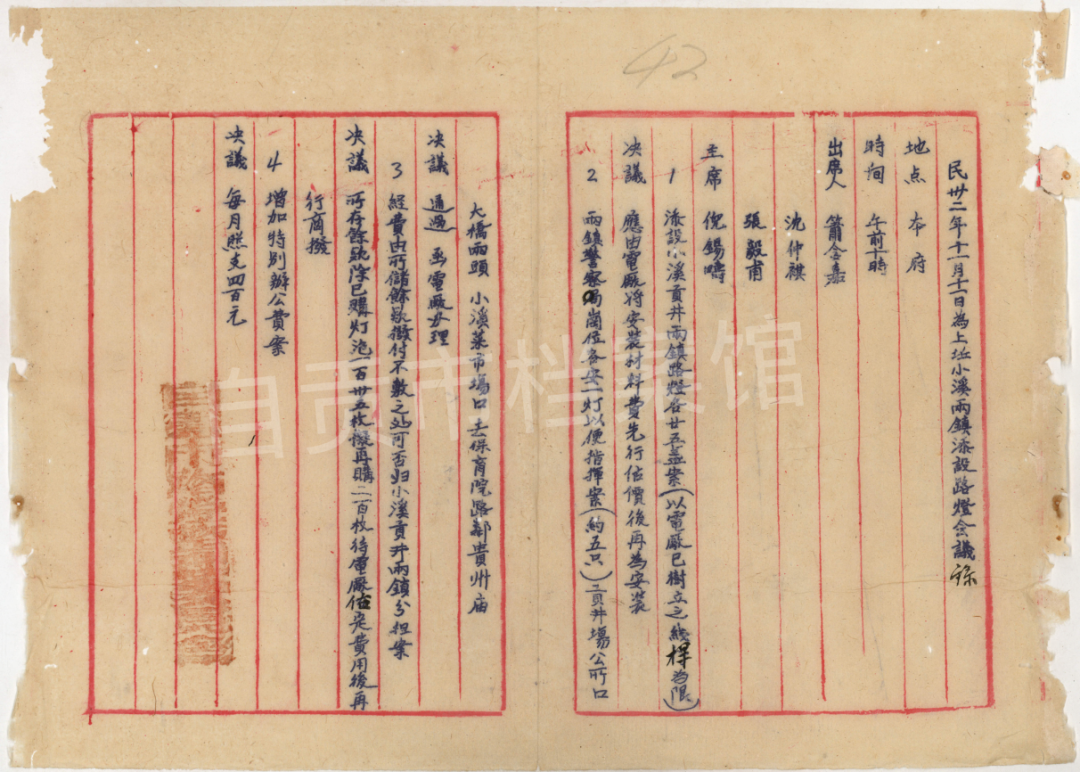 42
民卅二年十一月十一日為上址小溪兩鎮添設路燈会議録
地点 本府
時间 午前十時
出席人 蕭含嘉
沈仲祺
張毅甫
主席 倪錫疇
1 添設小溪貢井兩鎮路燈各廿五盏案(以電厰已樹立之线桿為限)
决議 應由電厰将安裝材料費先行估價後再為安裝
2 兩鎮警察崗位各安一灯以便指揮案(約五只)貢井場公所口
大橋兩頭 小溪菜市場口 去保育院路 貴州庙
决議 通過 函電厰办理
3 經費由所儲餘款撥付不敷之処可否归小溪貢井兩鎮分担案
决議 所存餘款除已購灯泡一百卅五枚擬再購二百枚待電厰估定費用後再
行商撥
4 增加特别辦公費案
决議 每月照支四百元
自贡市档案馆